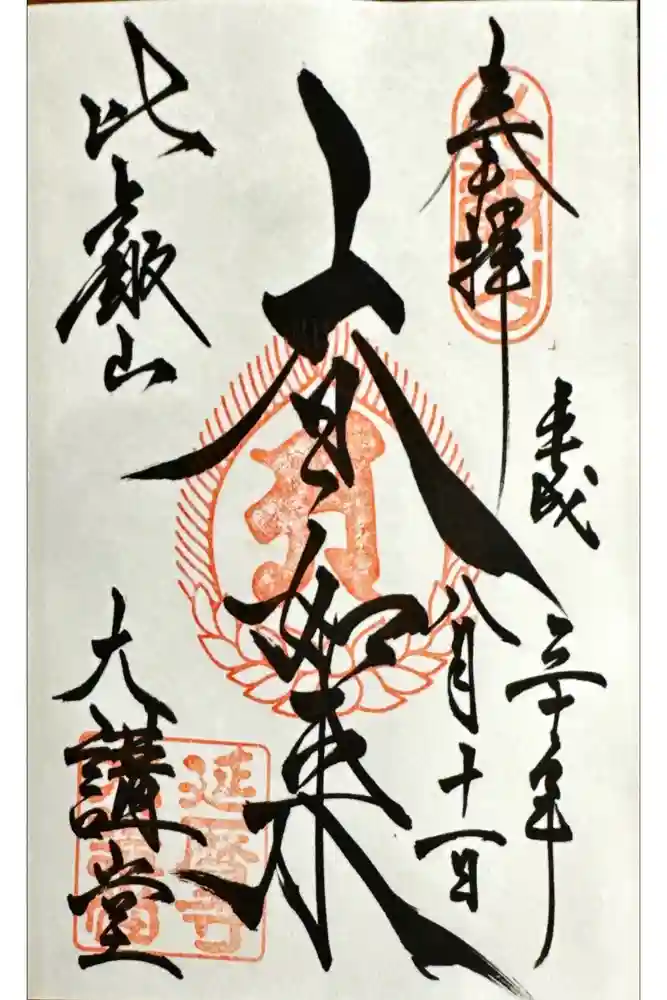 奉拝
平成
三十年
八月十一日
大日如来
比叡山
大講堂
延暦寺